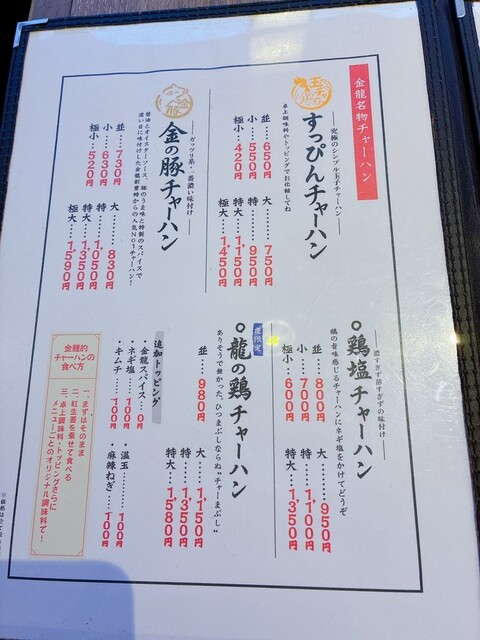 金龍名物チャーハン
究極のシンプル玉子チャーハン
すっぴんチャーハン
卓上調味料やトッピングでお化粧してね
並…650円
小…550円
極小…420円
大…750円
特大…950円
極大…1,150円
1,450円
ガッツリ系・一番濃い味付け
金の豚チャーハン
醤油とオイスターソース、豚のうま味と特製のスパイスで
濃い目に味付けした金龍創業時からの人気No1チャーハン!
並…730円
小…630円
極小…520円
大…830円
特大…1,050円
特大…1,350円
極大…1,590円
濃すぎず薄すぎずの味付け
鶏塩チャーハン
鶏の旨味感じるチャーハンにネギ塩をかけてどうぞ
並…800円
小…700円
極小…600円
大…950円
特大…1,100円
特大…1,350円
夜限定
龍の鶏チャーハン
ありそうで無かった、ひつまぶしならぬ"チャーまぶし"
並…980円
大…1,150円
特大…1,350円
特大…1,580円
追加トッピング
・金龍スパイス…0円
・ネギ塩…100円
・キムチ…100円
・温玉…100円
・麻辣ねぎ…100円
金龍的
チャーハンの
食べ方
一、まずはそのまま
二、紅生姜を乗せて食べる
三、卓上調味料・トッピングさらに
メニューごとのオリジナル調味料で!